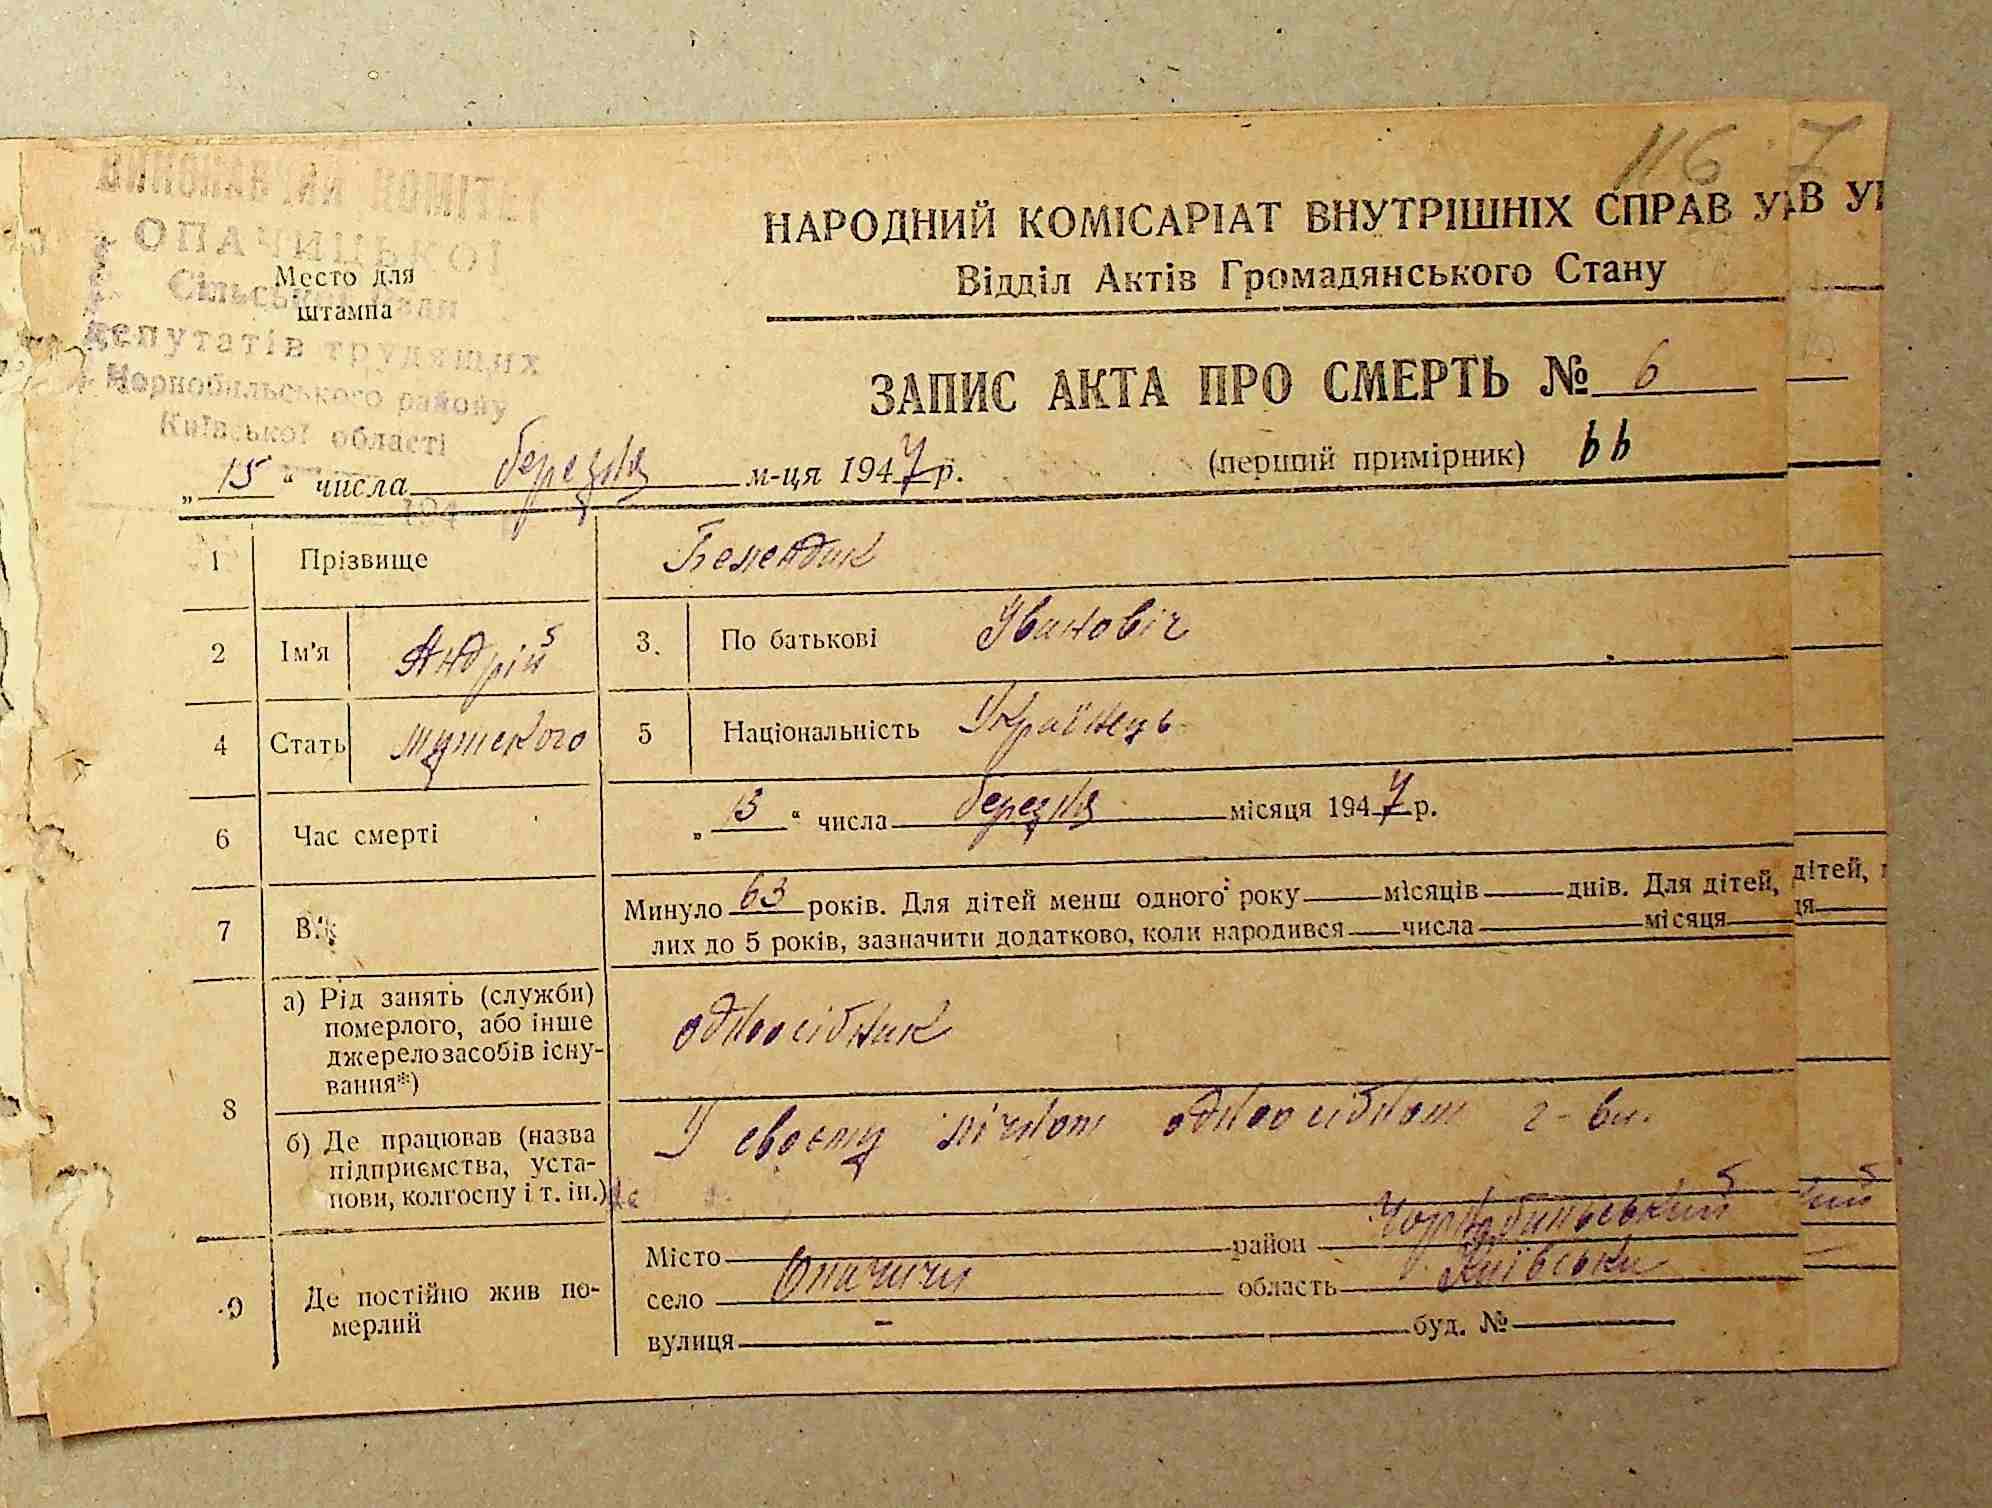 116 7
НАРОДНИЙ КОМІСАРІАТ ВНУТРІШНІХ СПРАВ У
АВ УР
Відділ Актів Громадянського Стану
ОПАЧИЦЬКОЇ
Место для
штампа
Сільської Ради
депутатів трудящих
Чорнобильського району
Київської області
194
ЗАПИС АКТА ПРО СМЕРТЬ № 6
(перший примірник) bb
„15“ числа березня м-ця 1947 р.
1 Прізвище Белендик
2 Ім'я Андрій 3. По батькові Івановіч
4 Стать мужского 5 Національність Українець
6 Час смерті „13“ числа березня місяця 1947 р.
7 Вік Минуло 63 років. Для дітей менш одного року місяців днів. Для дітей,
дітей,
лих до 5 років, зазначити додатково, коли народився числа місяця
ця
8 а) Рід занять (служби)
померлого, або інше
джерело засобів існу-
вання*)
односібник
б) Де працював (назва
підприємства, уста-
нови, колгоспу і т. ін.)
У своєму лічном односібном г-ви.
9 Де постійно жив по-
мерлий
Місто район Чорнобильський
село Опачичи область Київськи
вулиця - буд. №